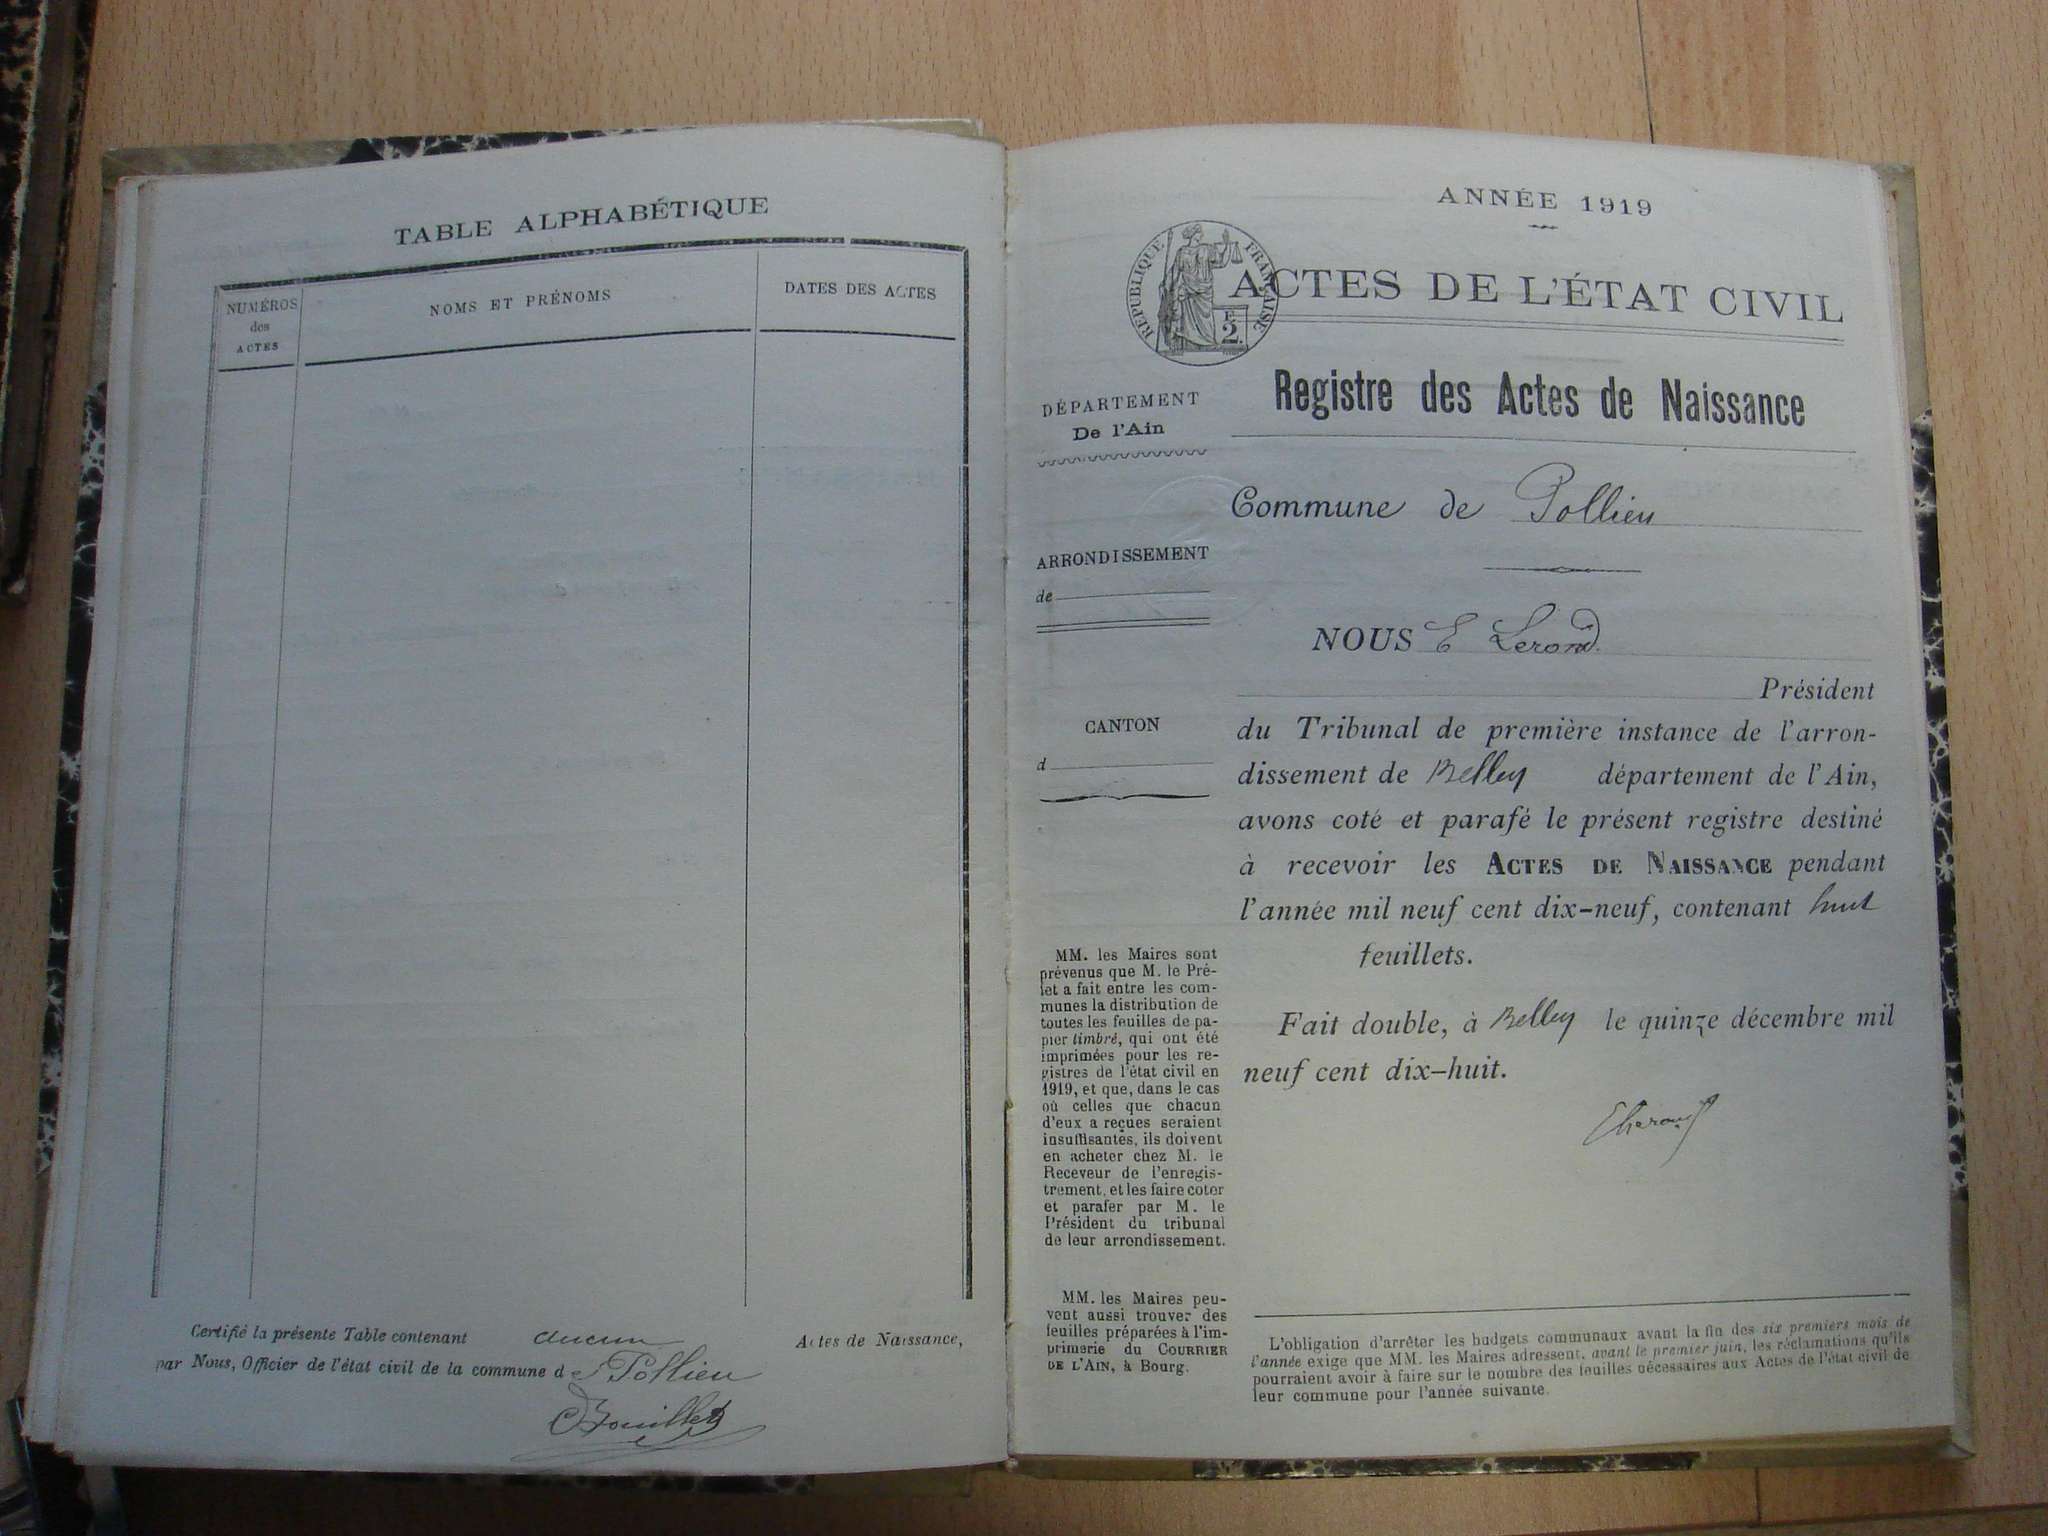 TABLE ALPHABÉTIQUE
NUMÉROS
des
ACTES
NOMS ET PRÉNOMS
DATES DES ACTES
Certifié la présente Table contenant aucun Actes de Naissance,
par Nous, Officier de l'état civil de la commune d e Pollieu
ANNÉE 1919
RÉPUBLIQUE FRANÇAISE
2
ACTES DE L'ÉTAT CIVIL
Registre des Actes de Naissance
DÉPARTEMENT
De l'Ain
ARRONDISSEMENT
de
CANTON
d
MM. les Maires sont
prévenus que M. le Pré-
fet a fait entre les com-
munes la distribution de
toutes les feuilles de pa-
pier timbré, qui ont été
imprimées pour les re-
gistres de l'état civil en
1919, et que, dans le cas
où celles que chacun
d'eux a reçues seraient
insuffisantes, ils doivent
en acheter chez M. le
Receveur de l'enregis-
trement, et les faire coter
et parafer par M. le
Président du tribunal
de leur arrondissement.
MM. les Maires peu-
vent aussi trouver des
feuilles préparées à l'im-
primerie du COURRIER
DE L'AIN, à Bourg.
Commune de Pollieu
NOUS E Lerond
Président
du Tribunal de première instance de l'arron-
dissement de Belley département de l'Ain,
avons coté et parafé le présent registre destiné
à recevoir les ACTES DE NAISSANCE pendant
l'année mil neuf cent dix-neuf, contenant huit
feuillets.
Fait double, à Belley le quinze décembre mil
neuf cent dix-huit.
L'obligation d'arrêter les budgets communaux avant la fin des six premiers mois de
l'année exige que MM. les Maires adressent, avant le premier juin, les réclamations qu'ils
pourraient avoir à faire sur le nombre des feuilles nécessaires aux Actes de l'état civil de
leur commune pour l'année suivante.